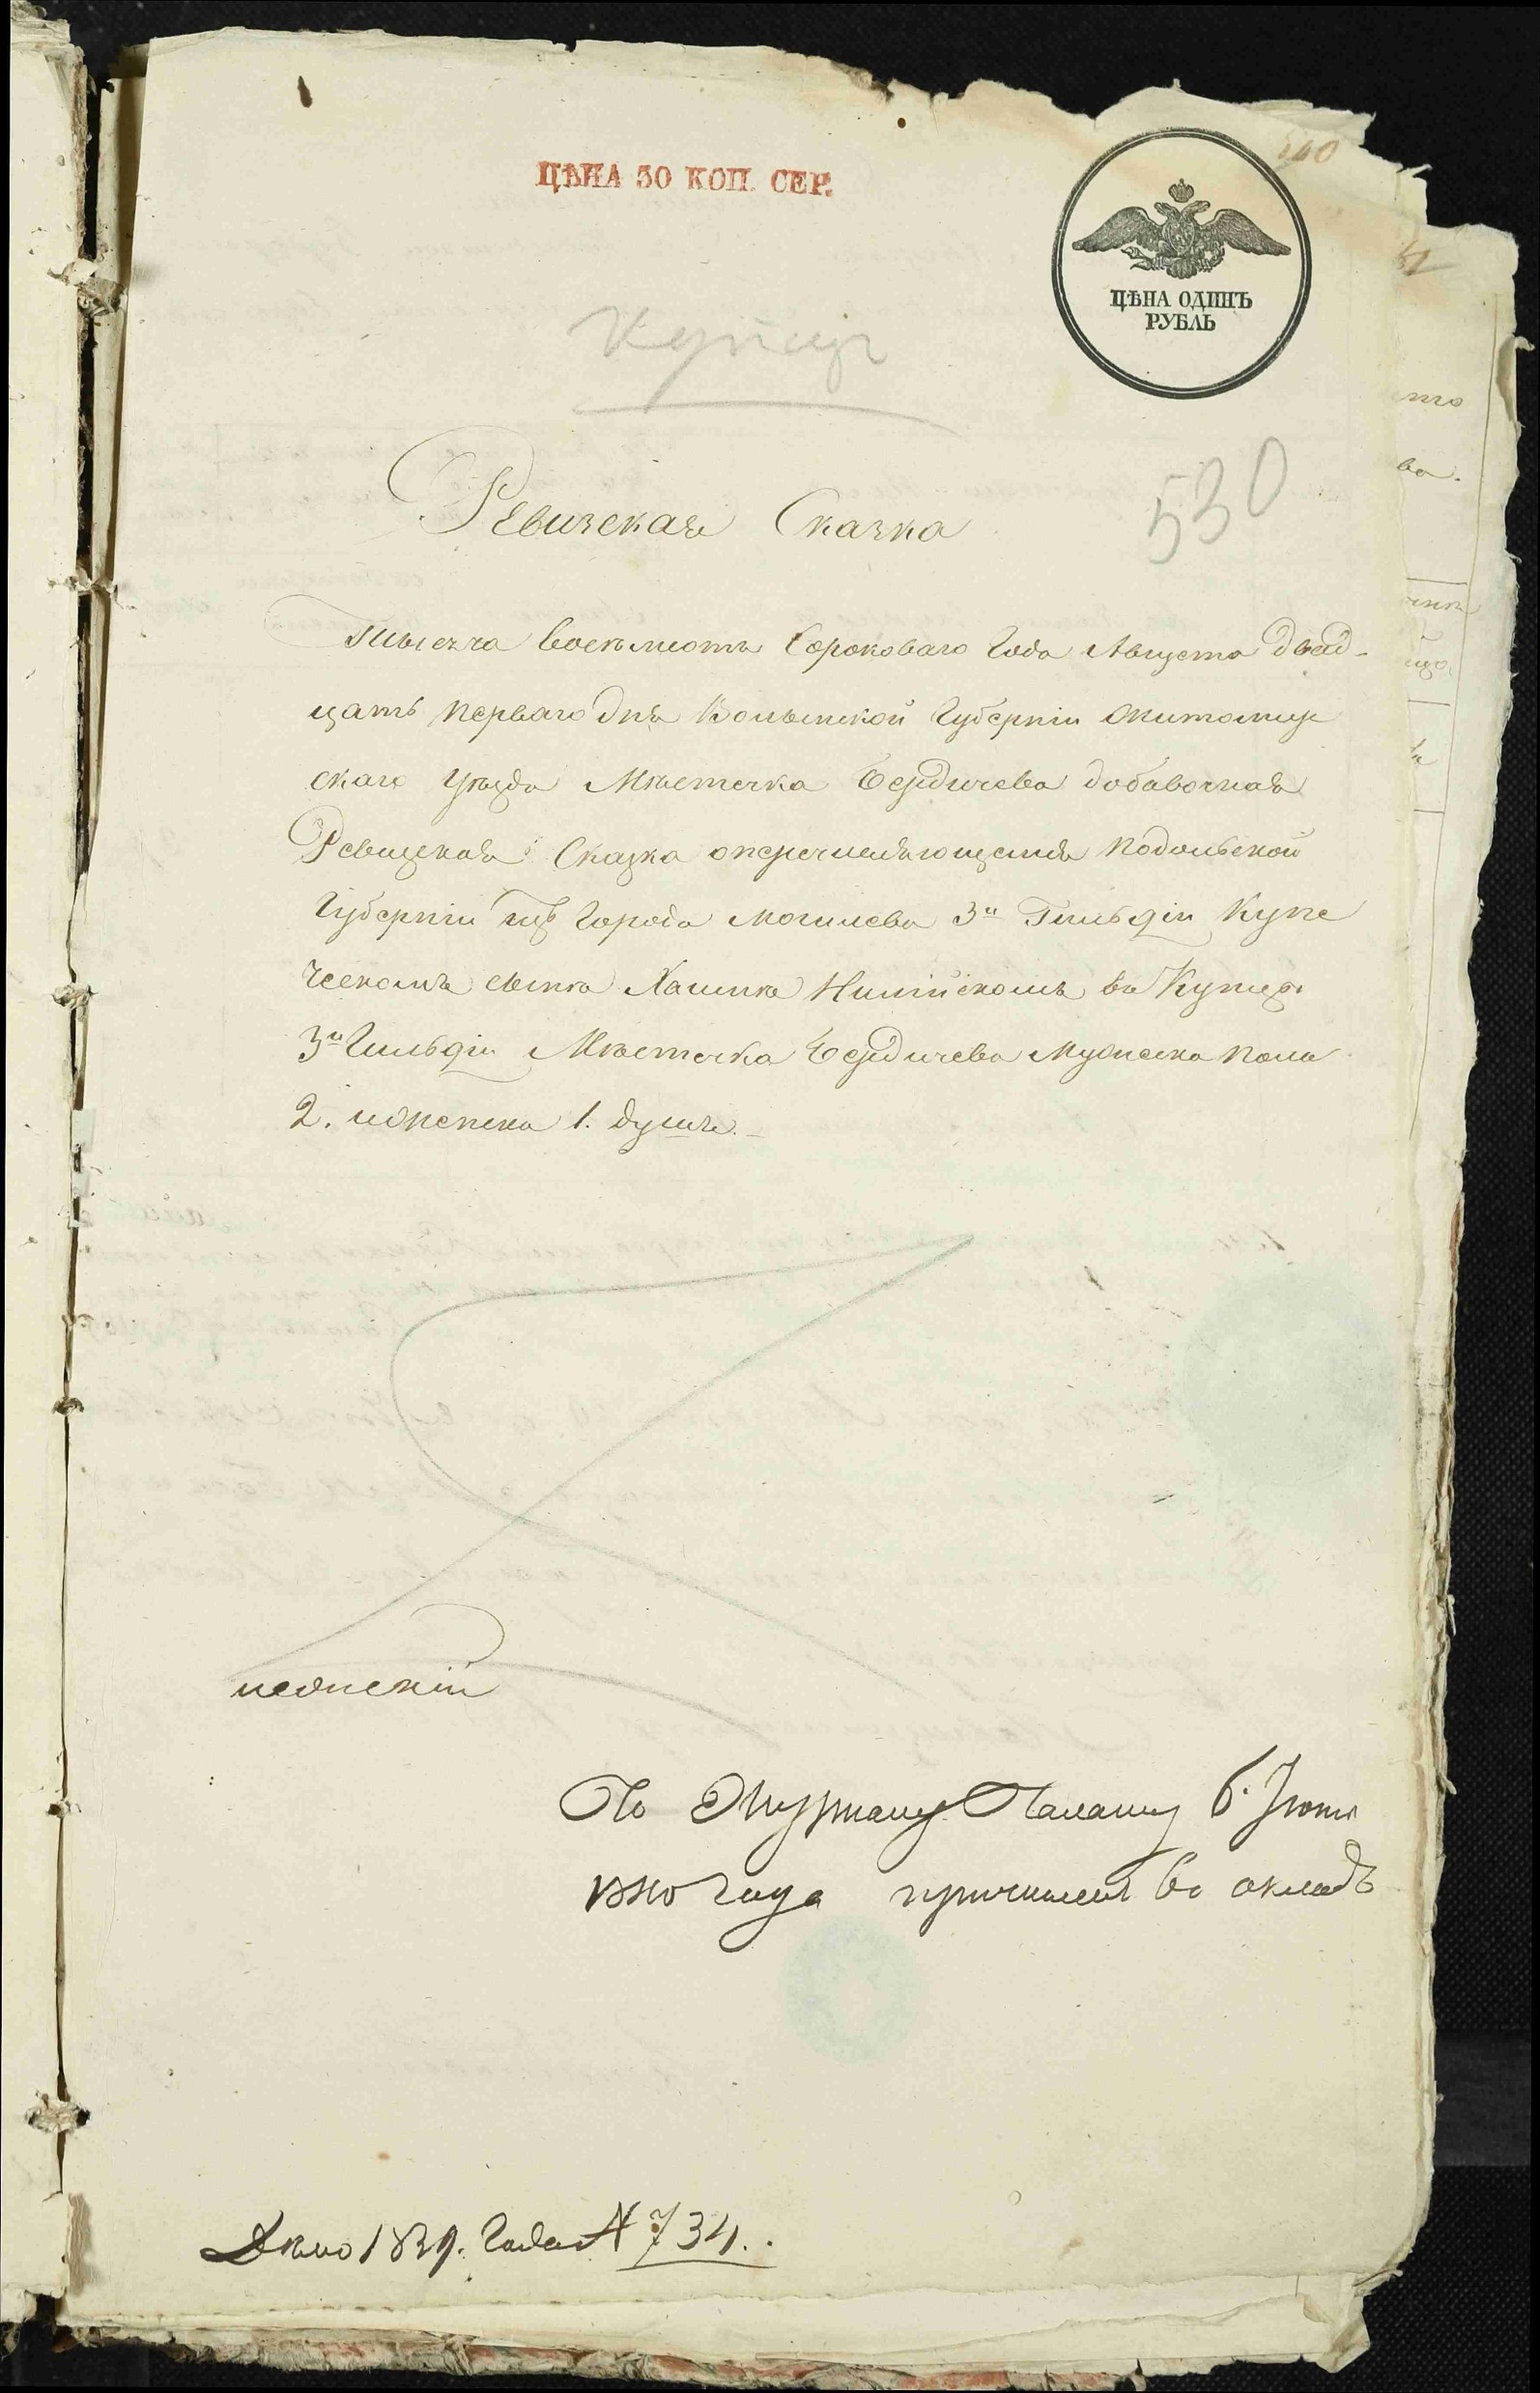 ЦѢНА 50 КОП. СЕР.
ЦѢНА ОДИНЪ
РУБЛЬ
Купцы
530
Ревизская Сказка
Тысяча восемьсотъ Сороковаго Года Августа двад-
цать перваго дня Волынской Губерніи Житомир
скаго уѣзда Мѣстечка Бердичева добавочная
Ревизская Сказка о перечисляющемся Подольской
Губерніи изъ Города Могилева 3й Гильдіи Купе
ческомъ сынѣ Хаимѣ въ Купцы
3й Гильдіи Мѣстечка Бердичева Мужеска пола
2. и женска 1. душѣ.
По Журналу Палаты 6. Іюня
1840 года причислен въ окладъ
Дѣло 1839. Года № 734.